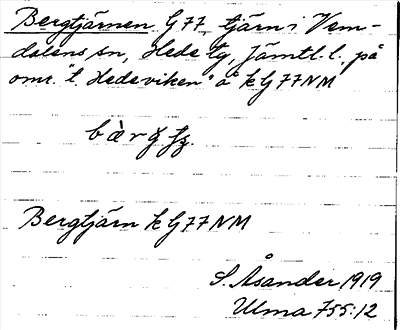 Bergtjärnen G 77 tjärn i Vem-
dalens sn, Hede tg, Jämtl. l., på
omr. "t. Hedeviken" å k G 77 NM
Bergtjärn k G 77 NM
S. Åsander 1919
Ulma 755:12